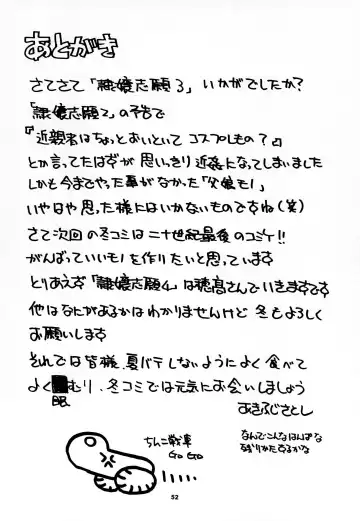 あとがき
さてさて「離嬢志願3」いかがでしたか?
「離嬢志願2」の予告で
『近親名はちょっとおいといて コスプレもの?』
とか言ってたはずが思いっきり近親になってしまいました
しかも今までやった事がなかった「父娘モノ」
いやはや思った様にはいかないものですね(笑)
さて次回の冬コミは二十世紀最後のコミケ!!
がんばっていいモノを作りたいと思っています
とりあえず「離嬢志願4」は穂高さんでいきますです
他はなにがあるかはわかりませんけど 冬もよろしく
お願いします
それでは皆様、夏バテしないようによく食べて
よく むり、冬コミでは元気にお会いしましょう
眠
あきふじさとし
ちんこ戦車
GoGo
なんでこんなはんぱな
残りかたするかな
52